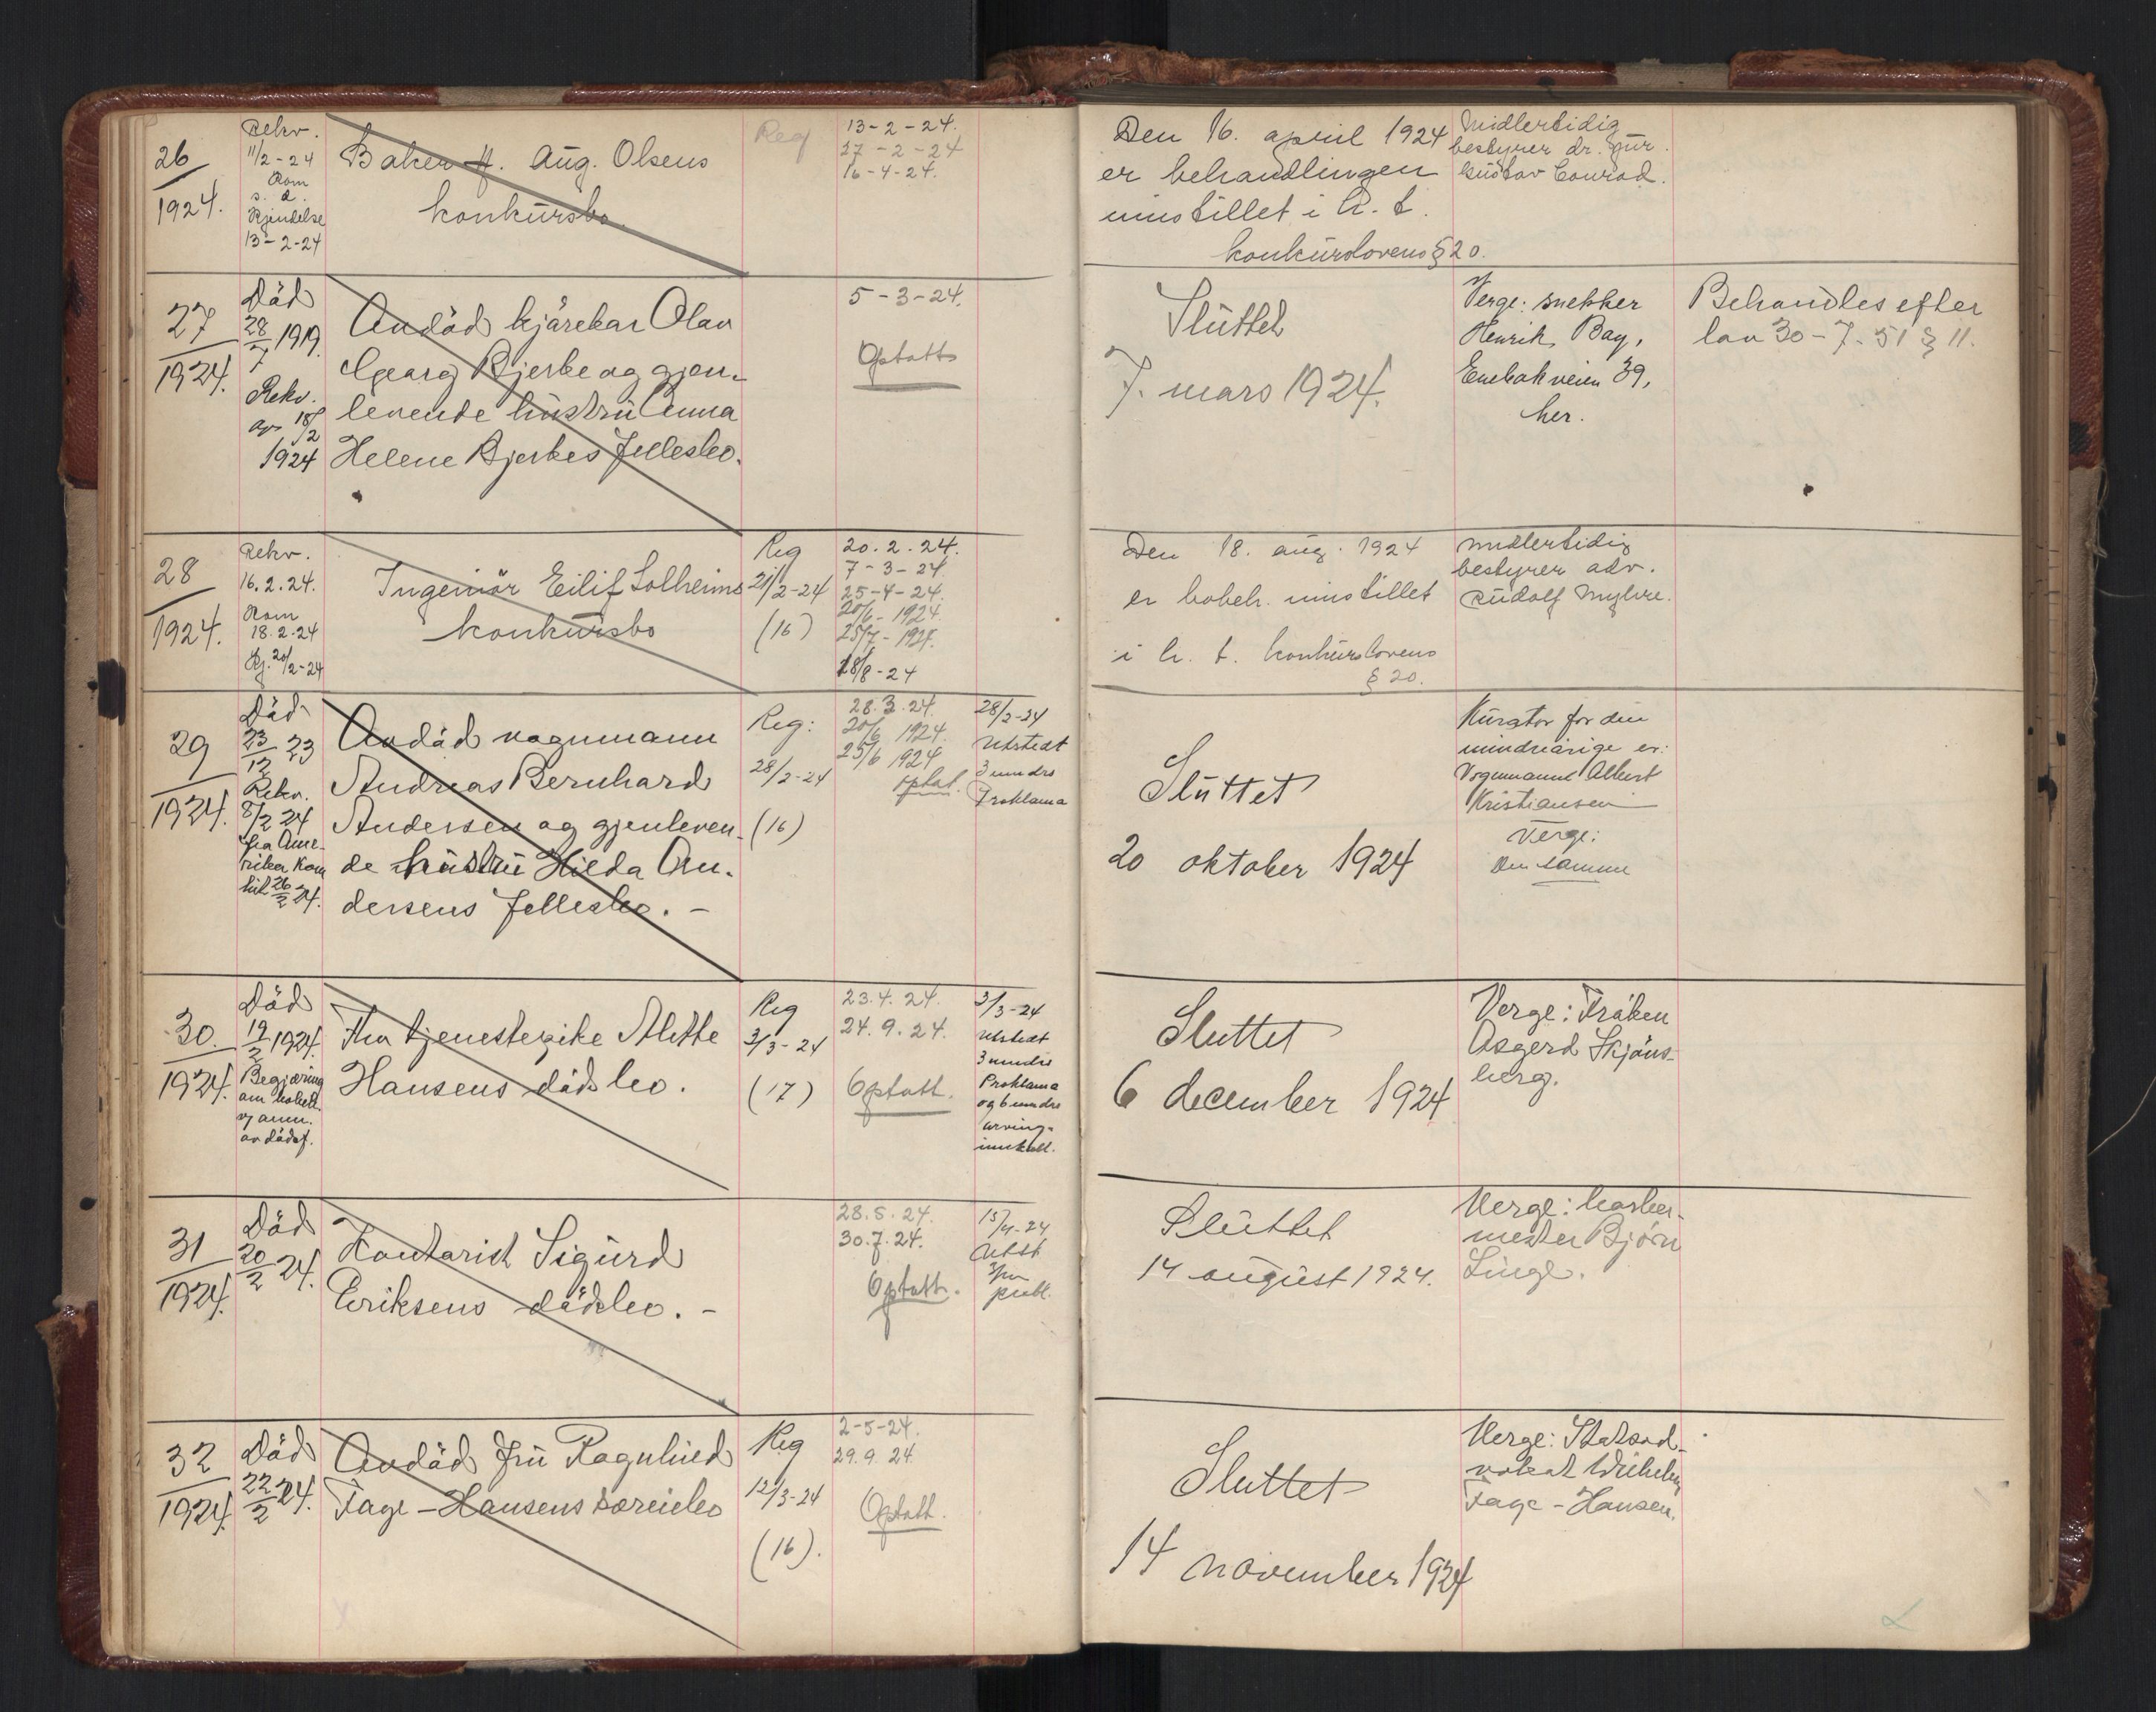 26
1924.
Rekv.
11/2-24
Kom
s. d.
Kjendelse
13-2-24
Baker H. Aug. Olsens
konkursbo
Reg
13-2-24.
27-2-24
16-4-24.
Den 16. april 1924
er behandlingen
innstillet i h. t.
konkurslovens § 20.
Midlertidig
bestyrer dr. jur.
Gustav Conrad.
27
1924.
Död
28/7 1919.
Rekv.
av 18/2
1924
Avdöd kjörekar Olav
Georg Bjerke og gjen-
levende hustru Anna
Helene Bjerkes fellesbo.
5-3-24.
Optatt
Sluttet
7. mars 1924.
Verge: snekker
Henrik Bay,
Enebakveien 39,
her.
Behandles efter
lov 30-7-51 § 11.
28
1924.
Rekv.
16.2.24.
Kom
18.2.24
Kj. 20/2-24
Ingeniör Eilif Solheims
konkursbo
Reg
21/2-24
(16)
20.2.24.
7-3-24.
25-4-24.
20/6-1924.
25/7-1924.
18/8-24
Den 18. aug. 1924
er bobeh. innstillet
i h. t. konkurslovens
§ 20.
Midlertidig
bestyrer adv.
Rudolf Myhre.
29
1924.
Död
23/12 23
Rekv.
8/2 24
fra Ame-
rika kom
hit 26/2 24.
Avdöd vognmann
Andreas Bernhard
Andersen og gjenleven-
de hustru Hilda An-
dersens fellesbo. -
Reg:
28/2-24
(16)
28.3.24.
20/6 1924.
25/6 1924
optat.
28/2-24
Utstedt
3 mndrs
Proklama
Sluttet
20 oktober 1924
Kurator for den
mindreårige er:
Vognmann Albert
Kristiansen
Verge:
Den samme
30.
1924.
Död
19/2 1924.
Begjæring
om bobeh.
og anm.
av dödsf.
Fhv tjenestepike Alette
Hansens dödsbo.
Reg
3/3-24
(17)
23.4.24.
24.9.24.
Optatt.
3/3-24
Utstedt
3 mndrs
Proklama
og 6 mndrs
arving-
innkall.
Sluttet
6 december 1924
Verge: Fröken
Asgerd Skjöns-
berg.
31
1924.
Död
20/2 24.
Kontorist Sigurd
Eriksens dödsbo. -
28.5.24.
30.7.24.
Optatt.
15/4-24
Utst
3m
prokl.
Sluttet
14 august 1924.
Verge:
mester Bjørn
Linge.
32
1924.
Död
22/2 24.
Avdöd fru Ragnhild
Fage-Hansens særeiebo
Reg
12/3-24
(16).
2-5-24.
29.9.24.
Optatt.
Sluttet
14 november 1924
Verge: Statsad-
vokat Wilhelm
Fage-Hansen.